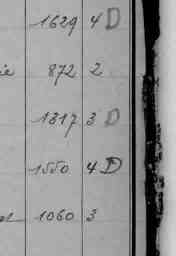 1629 4 D
ie 872 2
1317 3 D
1550 4 D
1060 3